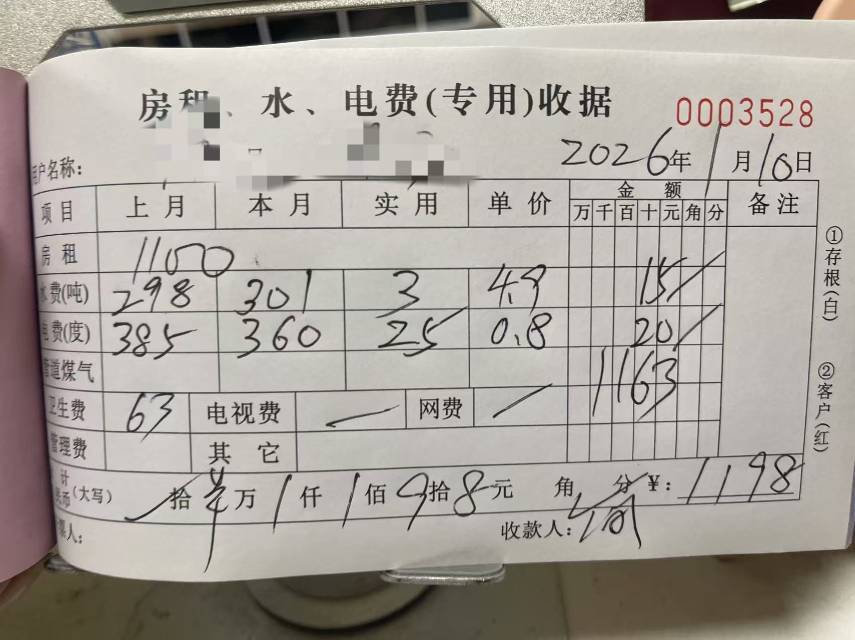 房租、水、电费(专用)收据 0003528
用户名称： 2026年1月10日
项目 上月 本月 实用 单价 金额 备注
万 千 百 十 元 角 分
房租 1100
水费(吨) 298 301 3 4.9 15
电费(度) 385 360 25 0.8 20
管道煤气 1163
卫生费 63 电视费 网费
管理费 其它
计
民币(大写) 拾 万 1仟 1佰 9拾 8元 角 分 ¥：1198
收款人：
①存根(白)
②客户(红)